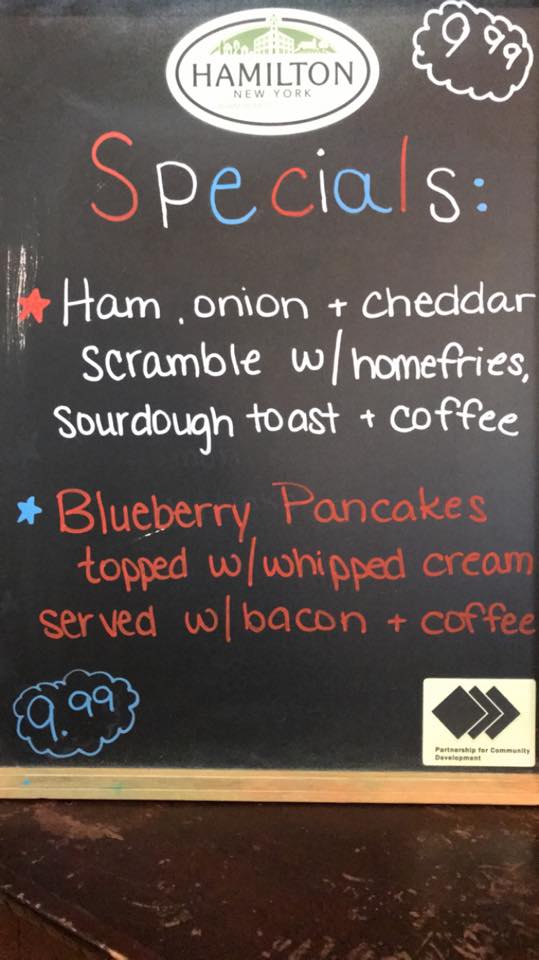 HAMILTON
NEW YORK
9 99
Specials:
Ham, onion + cheddar
scramble w/homefries,
sourdough toast + coffee
Blueberry Pancakes
topped w/whipped cream
served w/bacon + coffee
9.99
Partnership for Community
Development